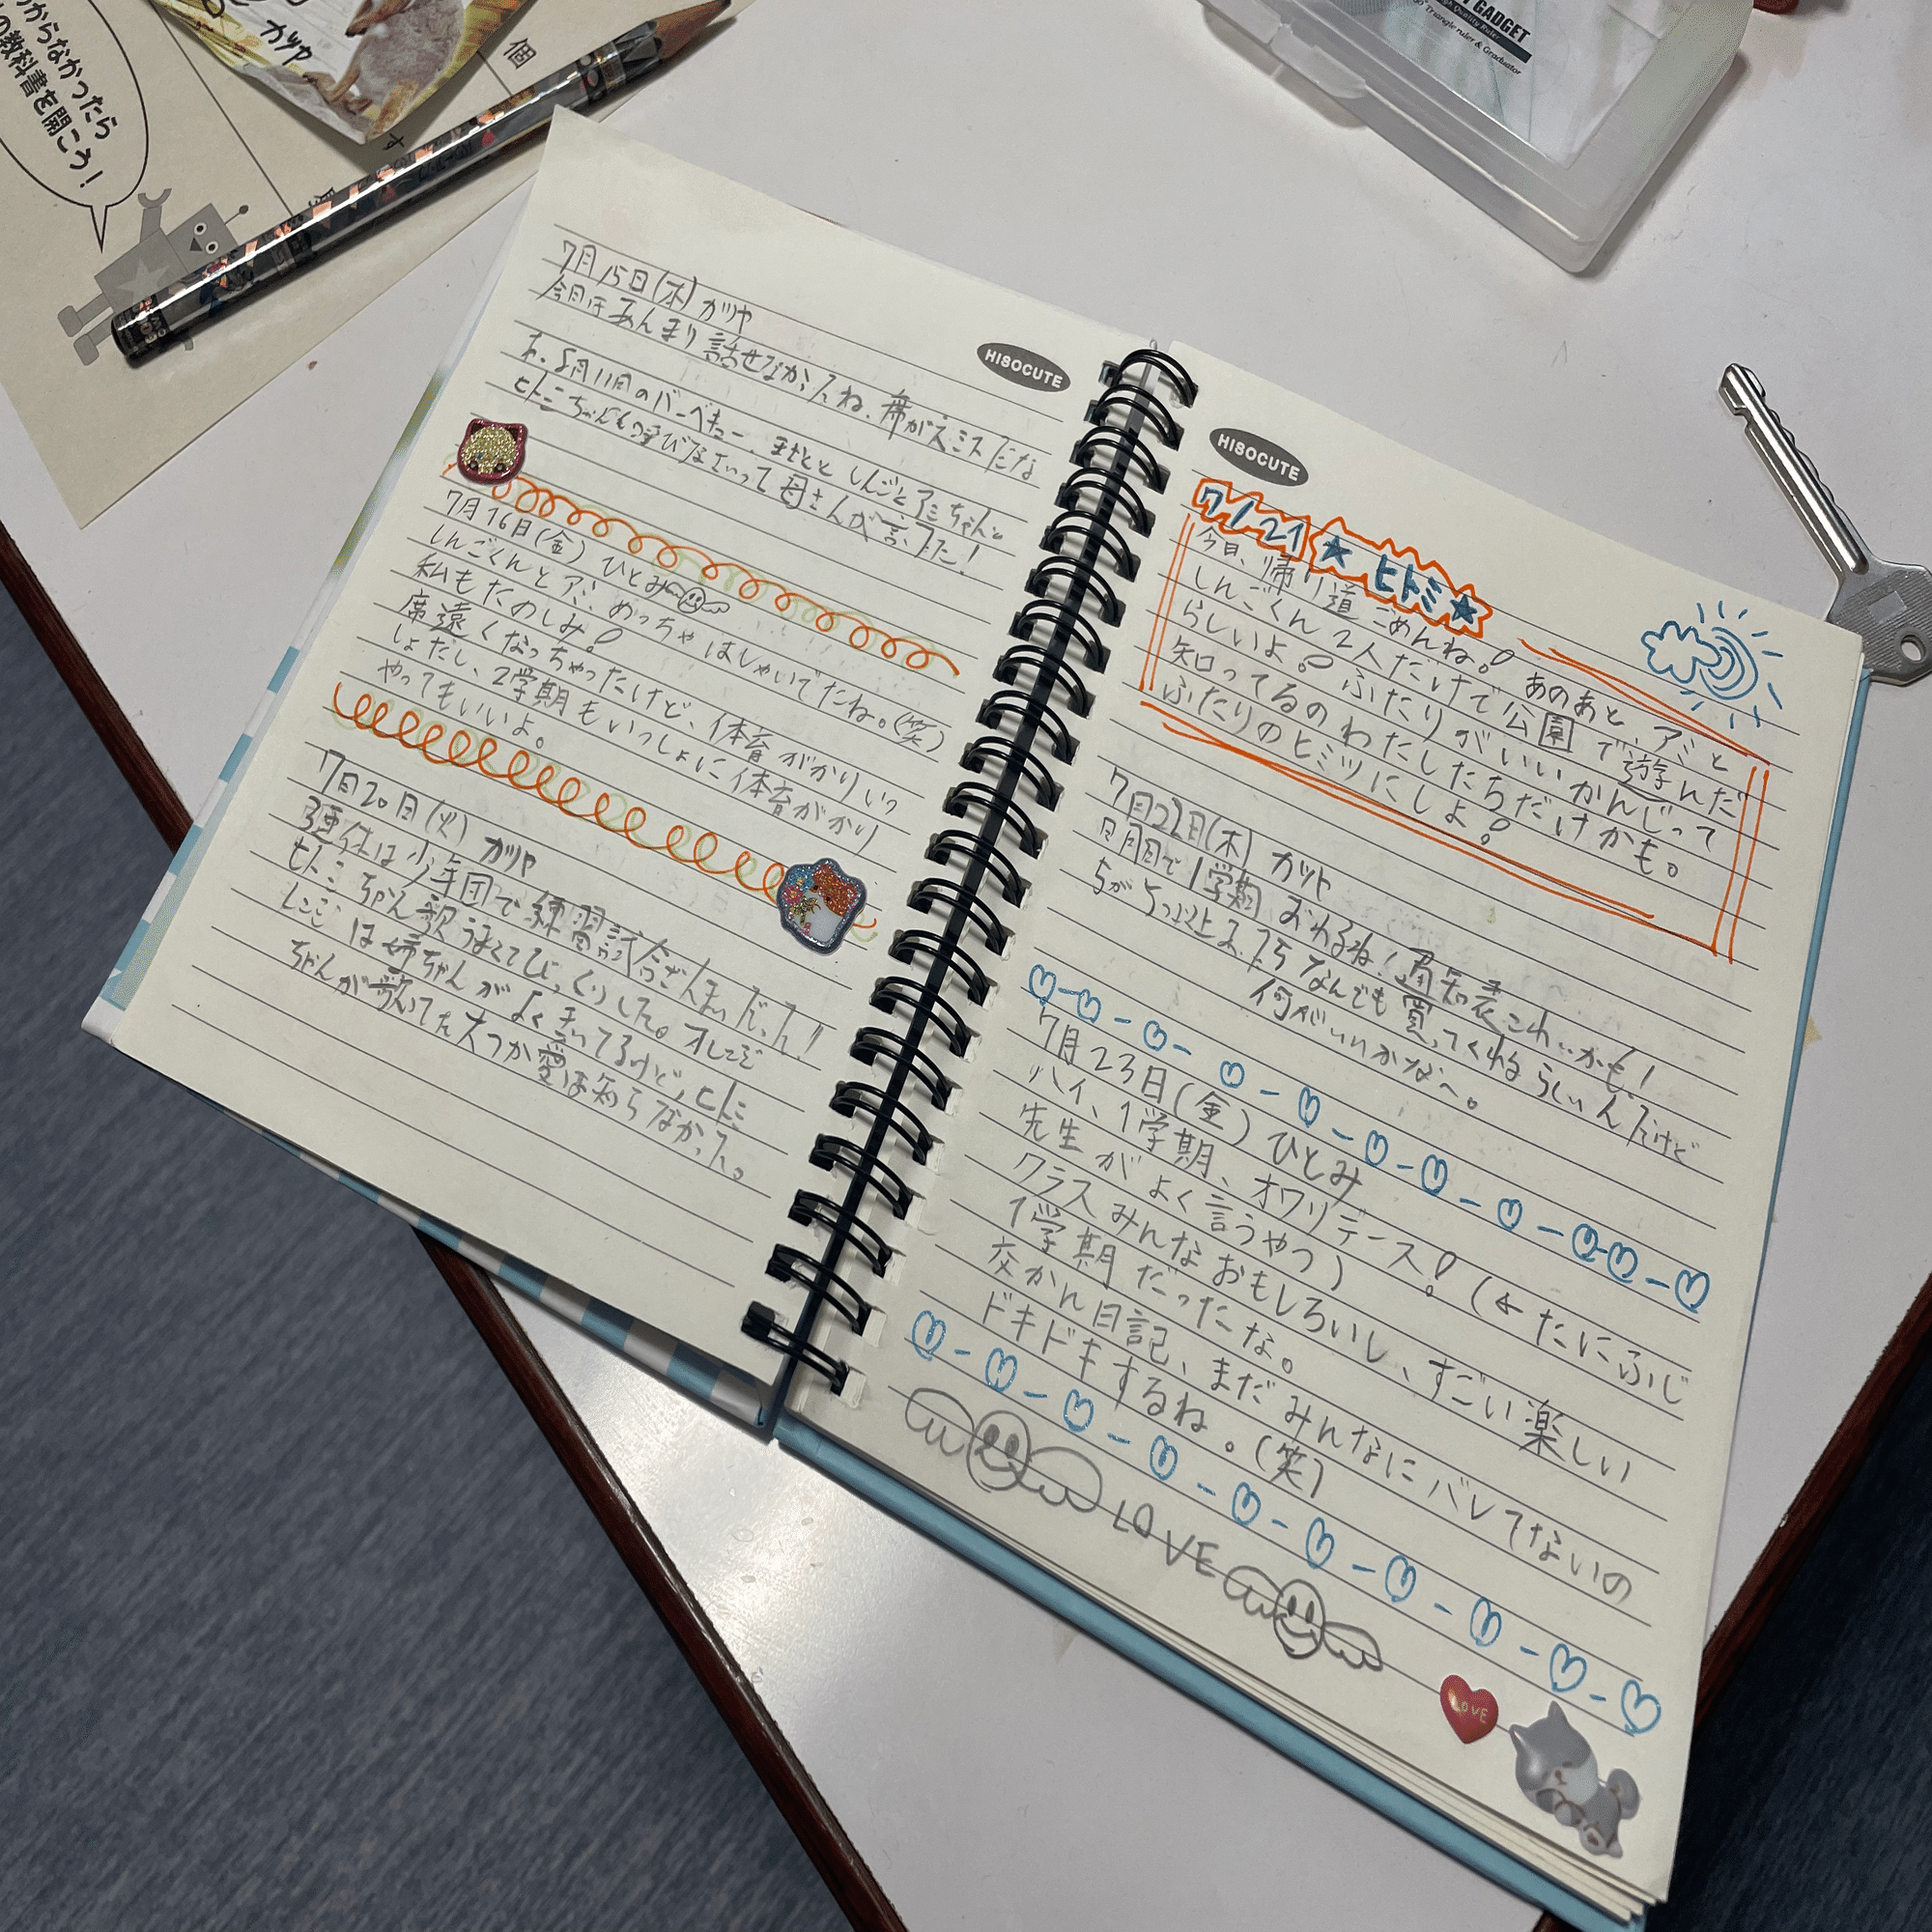 からなかったら
の教科書を開こう!
カツヤ
個
す
GADGET
Triangle ruler & Graduator
HISOCUTE
7月15日(木) カツヤ
今日はあんまり話せなかったね、席がえミスだな
あ、8月11日のバーベキュー、まさとと しんごとアミちゃんと
ヒトミちゃんも呼びなさいって母さんが言ってた!
7月16日(金) ひとみ
しんごくんとアミ、めっちゃはしゃいでたね。(笑)
私もたのしみ!
席遠くなっちゃったけど、体育がかりいっ
しょだし、2学期もいっしょに体育がかり
やってもいいよ。
7月20日(火) カツヤ
3連休は少年団で練習試合ざんまいだった!!
ヒトミちゃん歌うまくてびっくりした。オレンジ
レンジは姉ちゃんがよくきいてるけど、ヒトミ
ちゃんが歌ってた大つか愛は知らなかった。
HISOCUTE
7/21 ★ ヒトミ★
今日、帰り道ごめんね! あのあと、アミと
しんごくん2人だけで公園で遊んだ
らしいよ! ふたりがいいかんじって
知ってるのわたしたちだけかも。
ふたりのヒミツにしよ!
7月22日(木) カツヤ
明日で1学期おわるね! 通知表こわいかも!
5が5つ以上あったらなんでも買ってくれるらしいんだけど
何がいいかな〜。
7月23日(金) ひとみ
ハイ、1学期、オワリデース! (←たにふじ
先生がよく言うやつ)
クラスみんなおもしろいし、すごい楽しい
1学期だったな。
交かん日記、まだみんなにバレてないの
ドキドキするね。(笑)
LOVE
LOVE